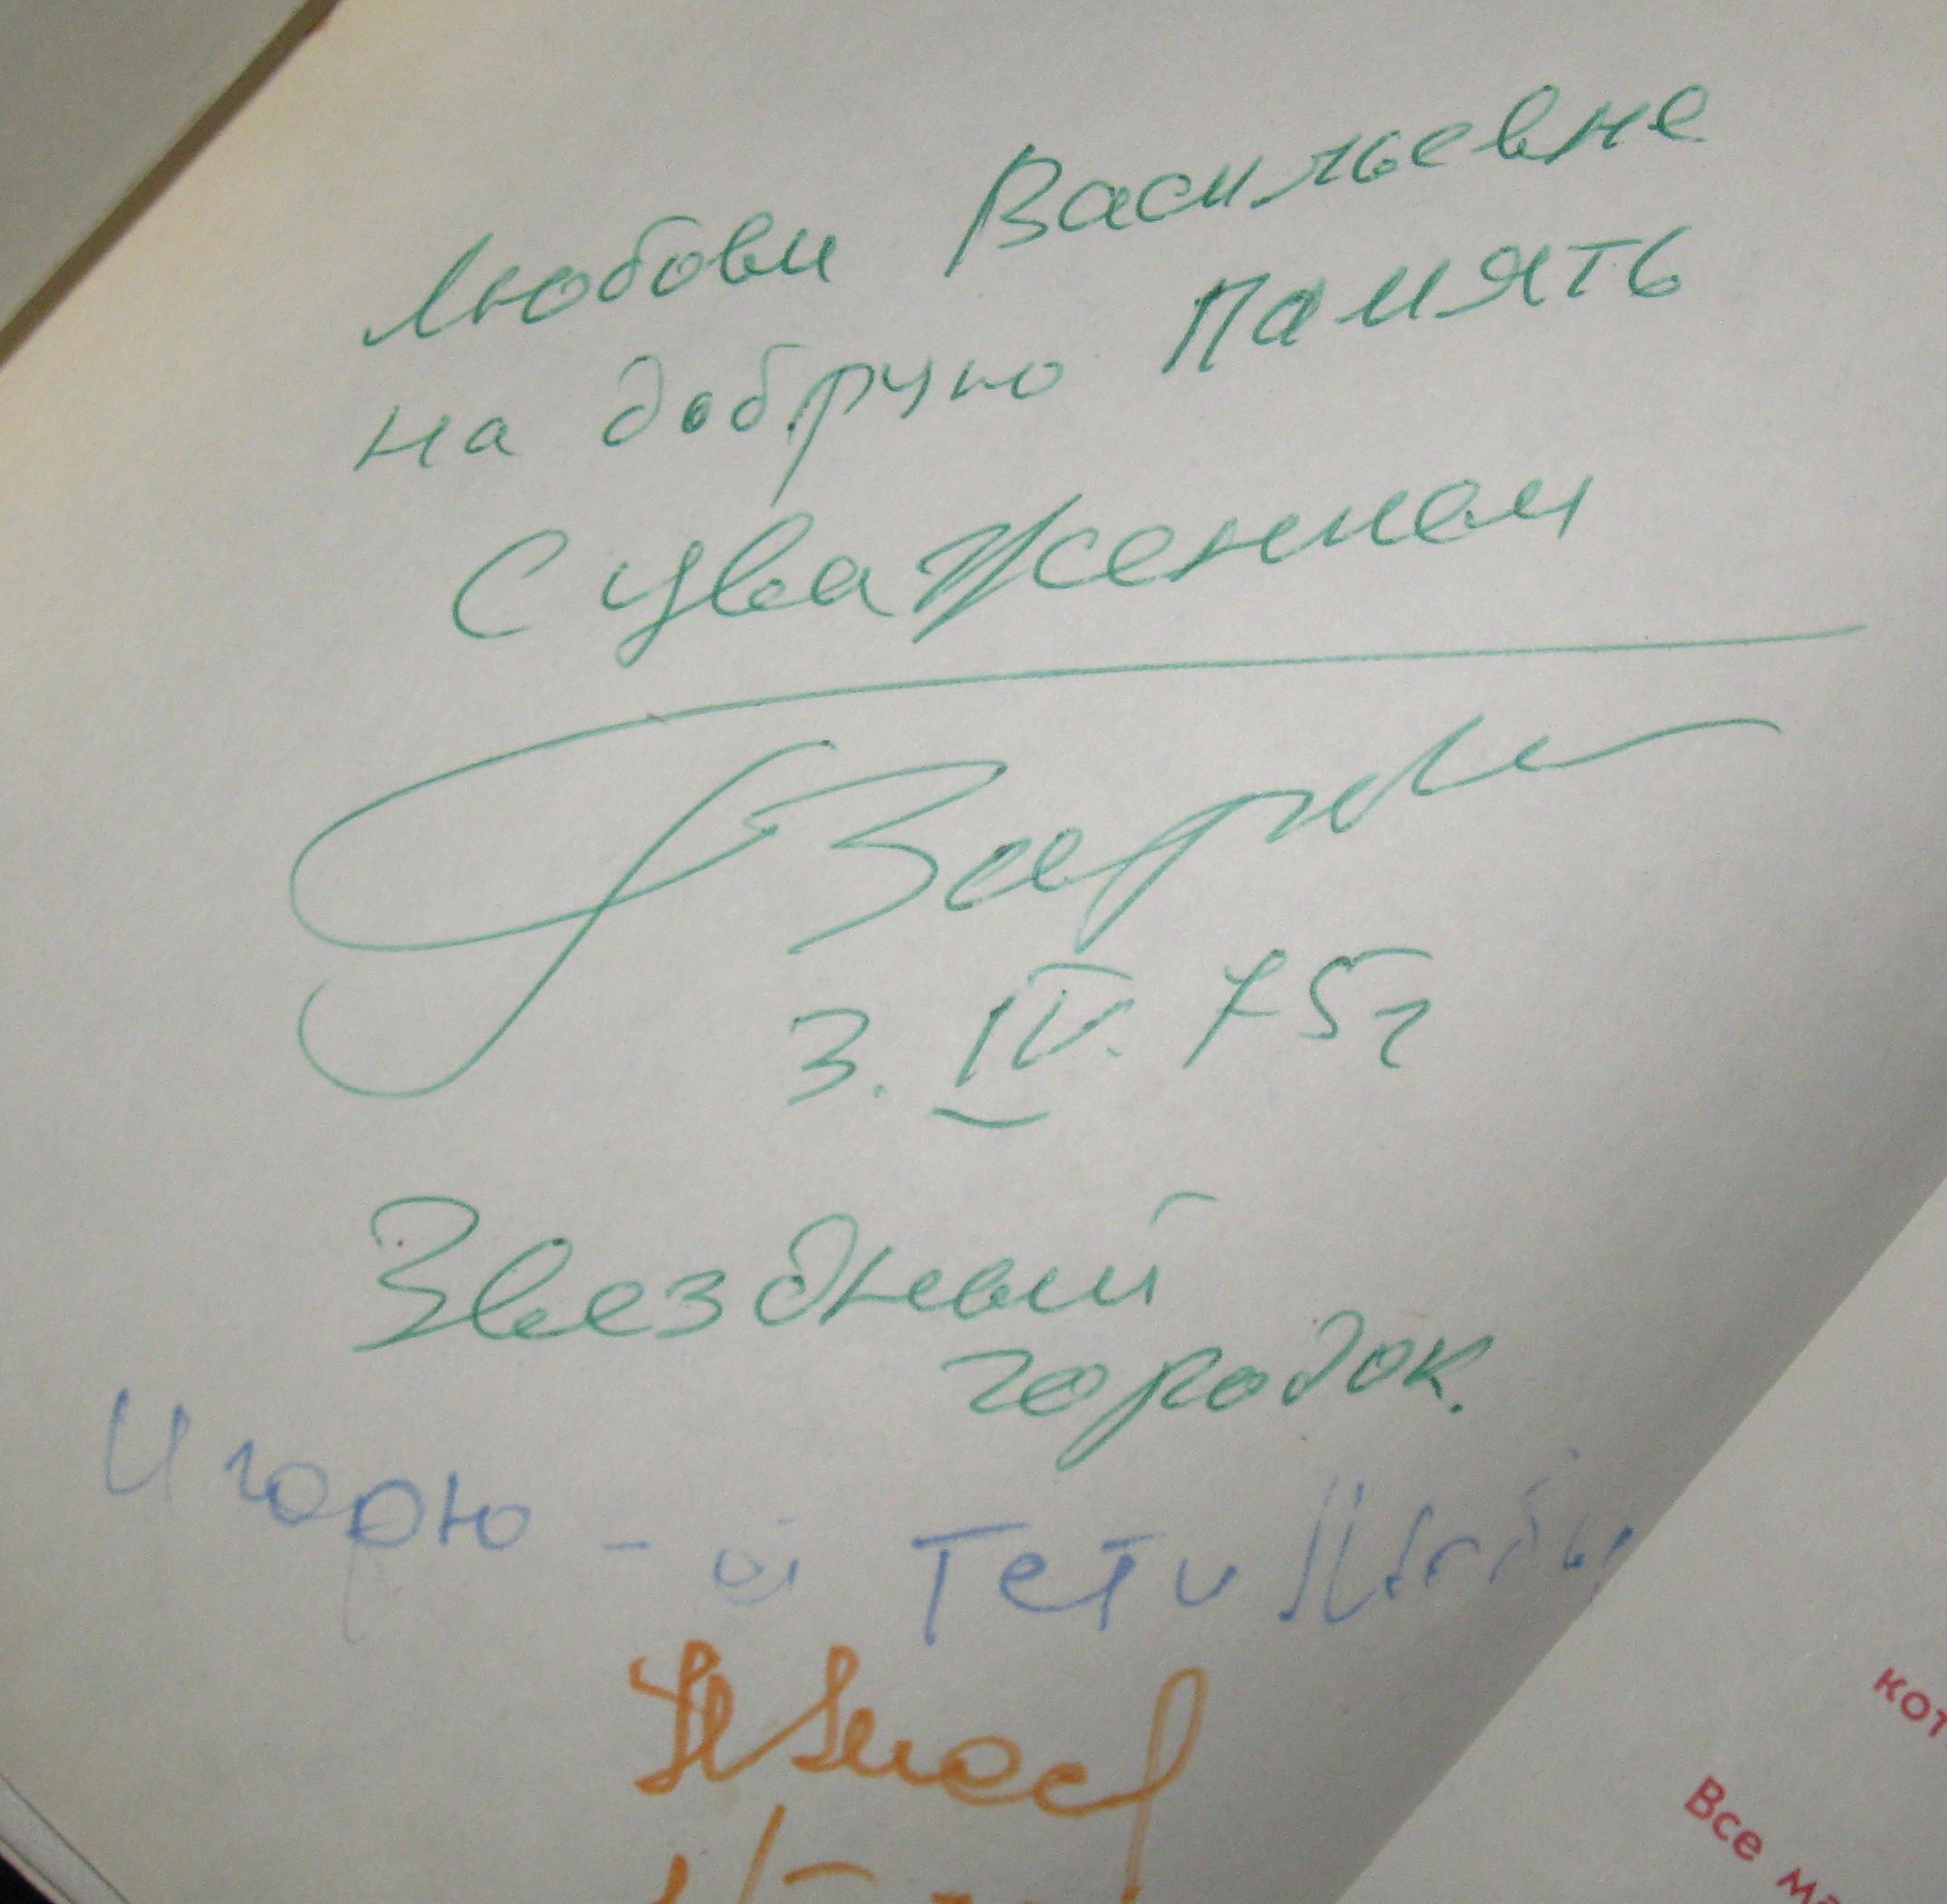 Любови Васильевне
на добрую память
С уважением
3. IV. 75г
Звездный
городок.
Игорю - от Тети Любы
кот
Все ма